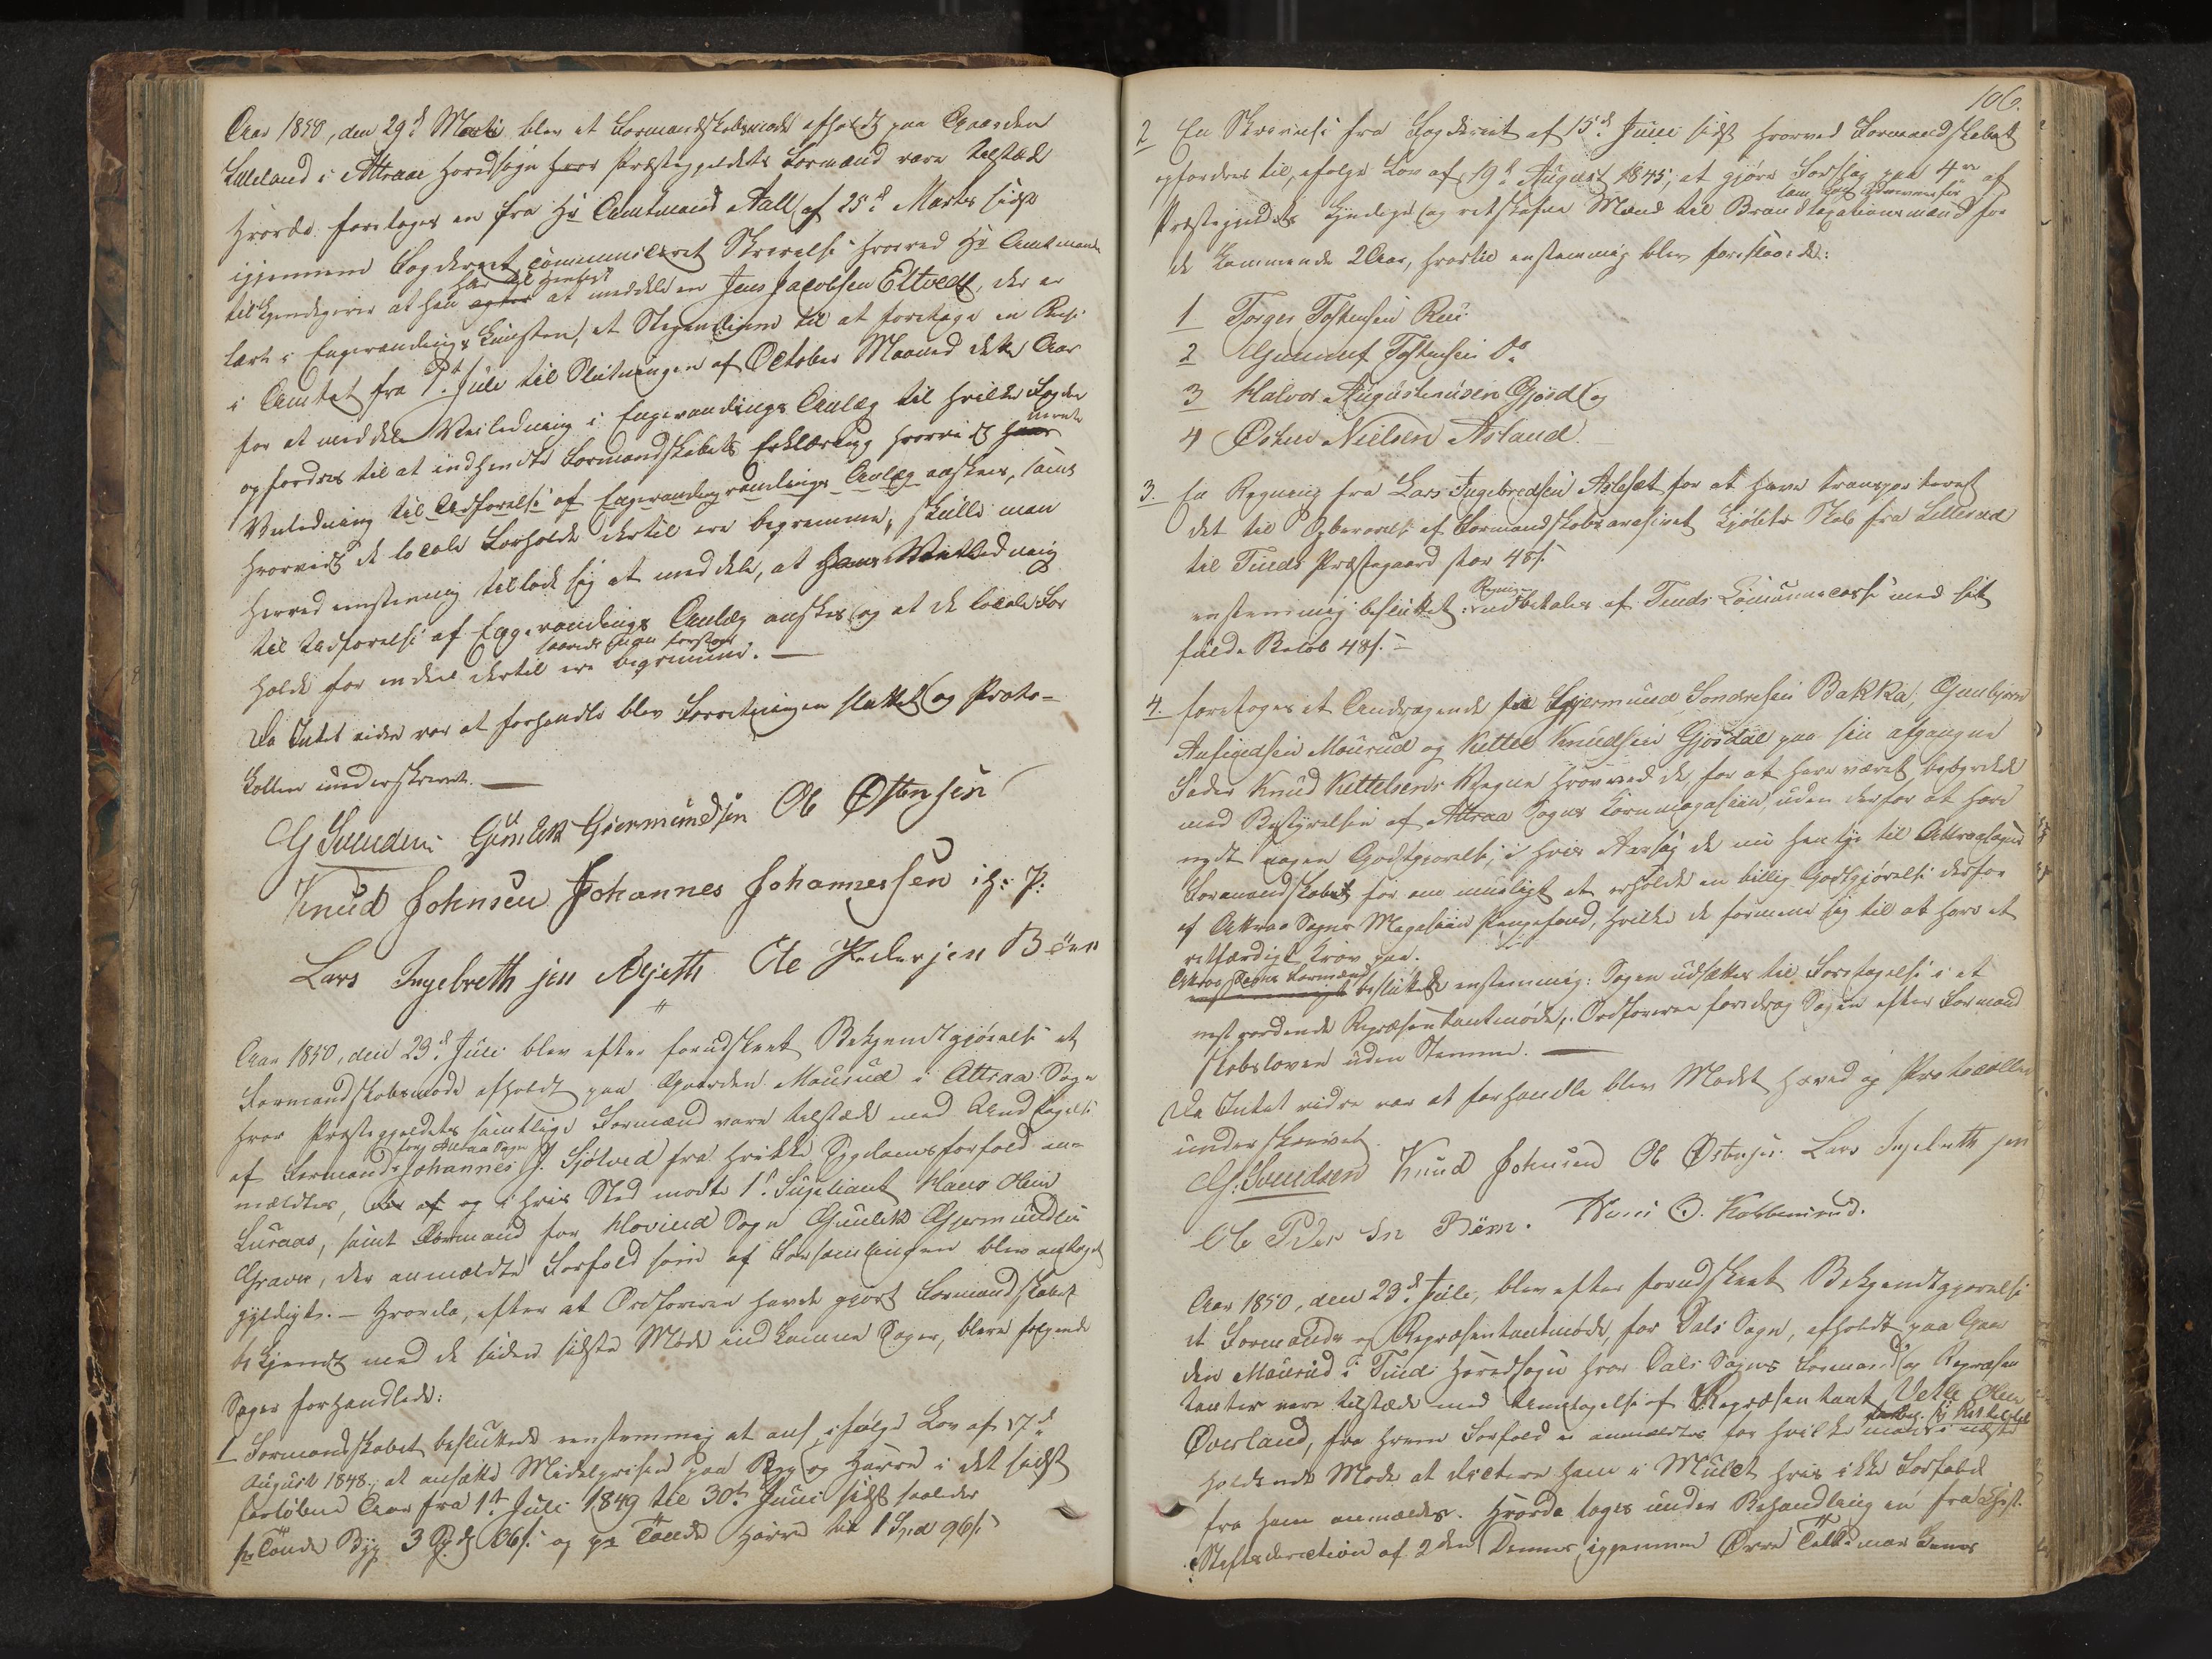 Aar 1850, den 29d Marts blev et Formandskabsmøde afholdt paa Gaarden
Lilleland i Attraae Hovedsogn hvor Præstegjeldets Formænd vare tilstæde
Hvorda foretages en fra Hr Amtmand Aall af 25d Marts sidst
igjennem Fogderiet communiceret Skrivelse hvorved Hr Amtmand
har til Hensigt
tilkjendegiver at han at meddele en Jens Jacobsen Eltvedt, der er
lært i Engevandings Kunsten, et Stipendium til at foretage en Reise
i Amtet fra 1st Juli til Slutningen af October Maaned dette Aar
for at meddele Veiledning i Engevandings Anlæg til hvilket Fogden
opfordres til at indhente Formandskabets Erklæring hvorvidt
nævnte
Veiledning til Udførelse af Engevandings Anlæg ønskes, samt
hvorvidt de locale Forholde dertil ere beqvemme, skulle man
herved enstemmig tillade sig at meddele, at hans Veiledning
til Udførelse af Engevandings Anlæg ønskes og at de locale For
holde for en deel dertil ere beqvemme. —
saavidt man forstaar
Da Intet videre var at forhandle blev Forretningen sluttet og Proto-
kollen underskrevet. —
G Svendsen Gunlek Giermundsen Ole Østensen
Knud Johnsen Johannes Johannessen i H: P:
Lars Ingebreth sen Ole Pedersen Bøen
Aar 1850, den 23d Juli blev efter forudskeet Bekjendtgjørelse et
Formandskabsmøde afholdt paa Gaarden Mourud i Attraa Sogn
hvor Præstegjeldets samtlige Formænd vare tilstæde med Undtagelse
for Attraa Sogn
af Formand Johannes J. Sjøtved fra hvilke Sygdomsforfald an-
mældtes, og i hvis Sted mødte 1e Supleant Hans Olsen
Luraas, samt Formand for Hovind Sogn Gunlek Gjermundsen
Graver, der anmældte Forfald som af Forsamlingen blev antaget
gyldigt. — Hvorda, efter at Ordføreren havde gjort Formandskabet
bekjendt med de siden sidste Møde indkomne Sager, bleve følgende
Sager forhandlede:
1 Formandskabet besluttede enstemmig at ifølge Lov af 17d
August 1848, at ansætte Middelprisen paa Byg og Havre i det sidst
forløbne Aar fra 1st Juli 1849 til 30te Juni sidst saaledes
pr Tønde Byg 3 Spd 66s. og pr Tønde Havre til 1 Spd 96s.
106.
2 En Skrivelse fra Fogderiet af 15d Juni sidst hvorved Formandskabet
opfordres til, ifølge Lov af 19d August 1845, at gjøre Forslag paa 4re af
Præstegjeldets kyndige og retskafne Mænd til Brandtaxationsmænd for
de kommende 2 Aar, hvortil enstemmig blev foreslaaede:
1 Torger Tostensen Rui
2 Gunnuf Tostensen Do
3 Halvor Augustinusen Gjøsdl og
4 Østen Nielsen Asland.
3. En Regning fra Lars Ingebredsen Aslesæt for at have transporteret
det til Opbevarelse af Formandskabsarchivet kjøbte Skab fra Lillerud
til Tinds Præstegaard stor 48s.
Regningen
enstemmig besluttet: udbetales af Tinds Communecasse med sit
fulde Beløb 48s. —
4. foretages et Andragende fra Gjermund Sondresen Bakka, Gunbjørn
Aufindsen Mourud og Kittel Knudsen Gjøsdal paa sin afgangne
Fader Knud Kittelsens Vegne hvorved de, for at have været bebyrdede
med Bestyrelsen af Attraa Sogns Kornmagasin, uden derfor at have
nydt nogen Godtgjørelse, i hvis Aarsag de nu henty til Attraasogns
Formandskab, for om muligt at erholde en billig Godtgjørelse derfor
af Attraa Sogns Magasins Pengefond, hvilke de formene sig til at have et
retfærdigt Krav paa.
Attraa Sogns Formænd
besluttede enstemmig: Sagen udsættes til Foretagelse i et
nest vordende Repræsentantmøde. Ordføreren foredrog Sagen efter Formand
skabsloven uden Stemme. —
Da Intet vidre var at forhandle blev Mødet hævet og Protocollen
underskrevet.
G. Svendsen Knud Johnsen Ole Østensen Lars Ingebreth sen
Ole Peder Sn Bøen. Hans O. Kobberrud.
Aar 1850, den 23d Juli, blev efter forudskeet Bekjendtgjørelse
et Formands og Repræsentantmøde, for Dals Sogn, afholdt paa Gaar
den Mourud i Tinds Hovedsogn hvor Dals Sogns Formænd og Repræsen
tanter vare tilstæde med Undtagelse af Repræsentant Vetle Olsen
Øverland, fra hvem Forfald ei anmældtes for hvilke i næste
holdende Møde at dictere ham i Mulct hvis ikke Forfald
fra ham anmældes. Hvorda toges under Behandling en fra Christ.
Stiftsdirection af 2den Dennes, igjennem Øvre Tellemar